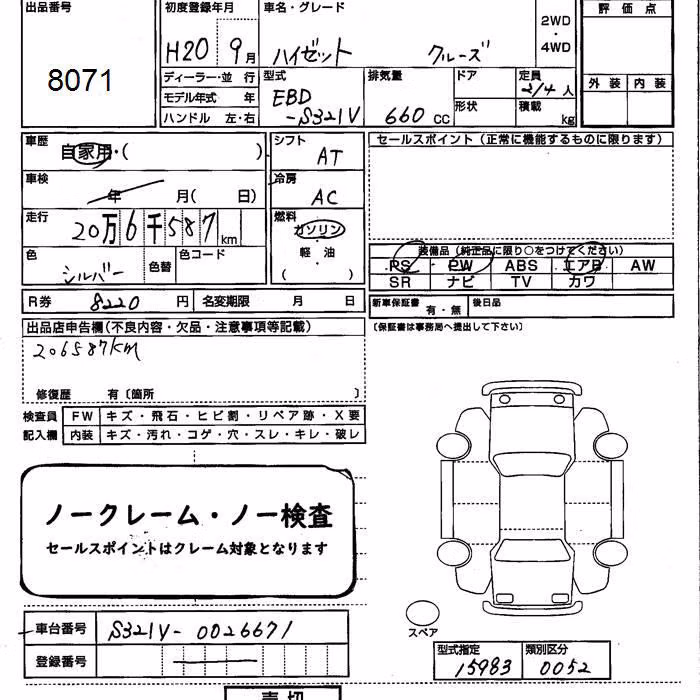 出品番号
8071
初度登録年月
H20 9月
車名・グレード
ハイゼット クルーズ
2WD
・
4WD
評価点
外装 内装
ディーラー・並行
モデル年式 年
ハンドル 左・右
型式
EBD
-S321V
排気量
660 cc
ドア
形状
定員
2/4人
積載
kg
車歴
自家用・( )
車検
年 月( 日)
走行
20万6千587km
色
シルバー
色替
色コード
シフト
AT
冷房
AC
燃料
ガソリン
軽・油
( )
セールスポイント(正常に機能するものに限ります)
装備品(純正品に限り○をつけてください)
PS・PW・ABS・エアB・AW
SR・ナビ・TV・カワ
R券 8220円 名変期限 月 日
新車保証書 有・無 後日品
(保証書は事務局へ提出して下さい)
出品店申告欄(不良内容・欠品・注意事項等記載)
206587km
修復歴 有〔箇所 〕
検査員 FW キズ・飛石・ヒビ割・リペア跡・X要
記入欄 内装 キズ・汚れ・コゲ・穴・スレ・キレ・破レ
ノークレーム・ノー検査
セールスポイントはクレーム対象となります
スペア
車台番号 S321V-0026671
登録番号
型式指定 類別区分
15983 0052
売切